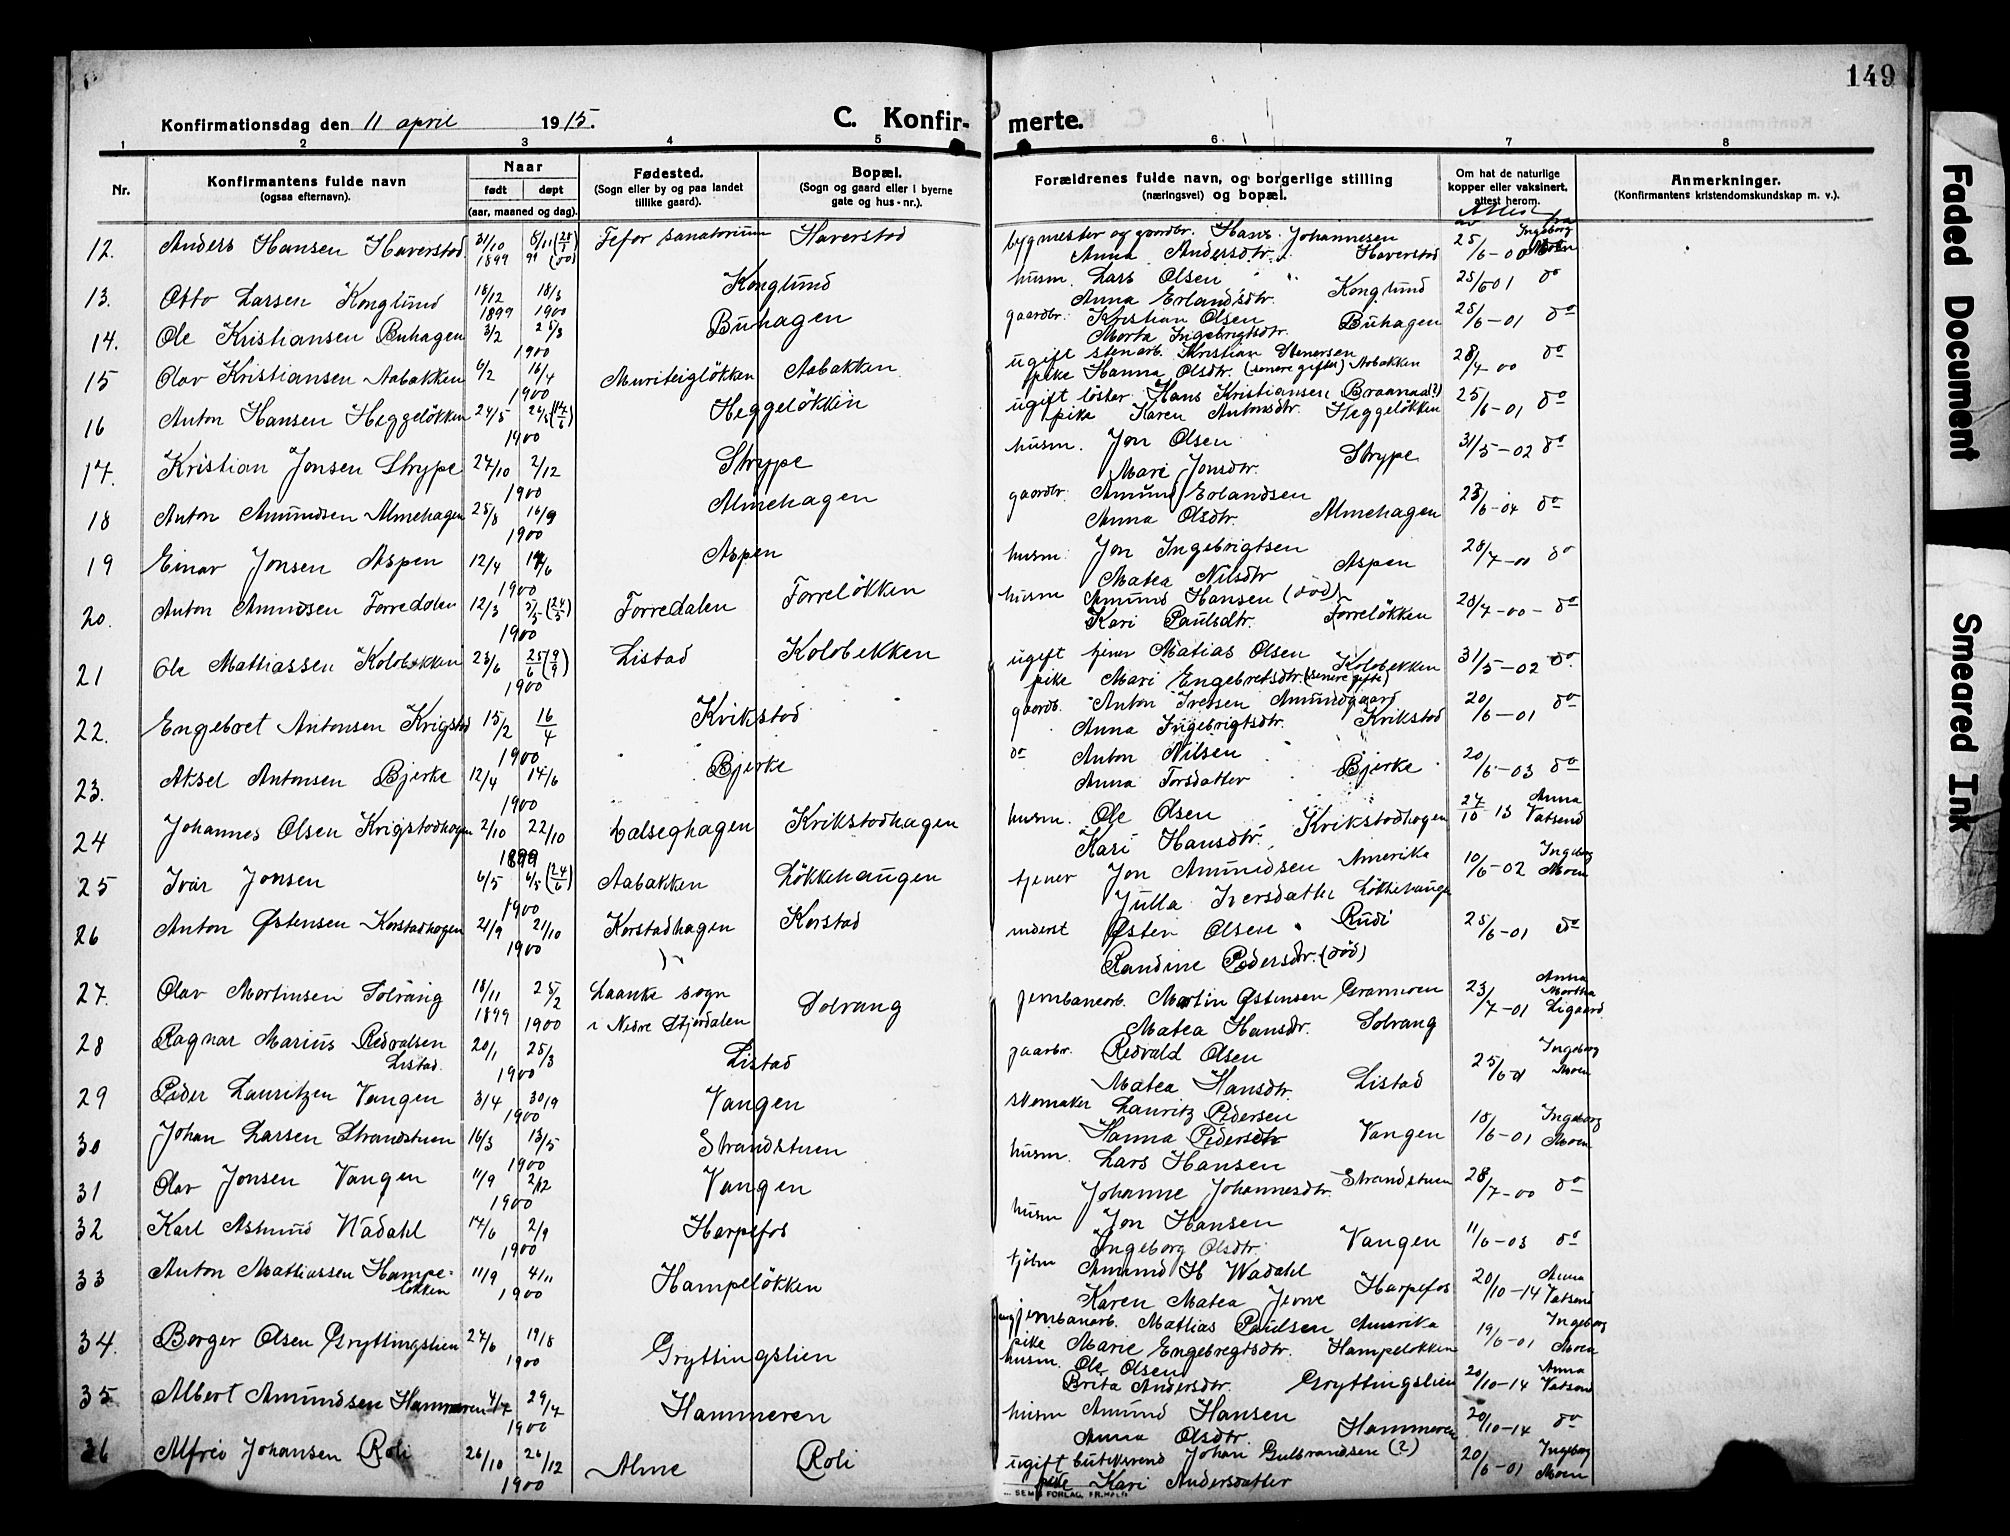 149
Konfirmationsdag den 11 april 1915.
C. Konfirmerte.
1 2 3 4 5 6 7 8
Nr.
Konfirmantens fulde navn
(ogsaa efternavn).
Naar
født døpt
(aar, maaned og dag).
Fødested.
(Sogn eller by og paa landet
tillike gaard).
Bopæl.
(Sogn og gaard eller i byerne
gate og hus-nr.).
Forældrenes fulde navn, og borgerlige stilling
(næringsvei) og bopæl.
Om hat de naturlige
kopper eller vaksinert,
attest herom.
Anmerkninger.
(Konfirmantens kristendomskundskap m. v.).
12. Anders Hansen Haverstad 31/10 1899 Fefor sanatorium Haverstad
bygmester og gaardbr. Hans Johannesen
Anna Andersdtr. Haverstad 25/6-00 Ingeborg Moen
13. Otto Larsen Konglund 18/12 1899 18/3 1900 Konglund
husm. Lars Olsen
Anna Erlandsdtr. Konglund 25/6 01 do
14. Ole Kristiansen Buhagen 3/2 25/3 1900 Buhagen
gaardbr. Kristian Olsen
Marta Ingebrigtsdtr. Buhagen 25/6-01 do
15 Olav Kristiansen Aabakken 6/2 16/4 1900 Muriteigløkken Aabakken
ugift stenarb. Kristian Stenersen
pike Hanna Olsdtr. (senere gifte) Aabakken 28/4 00 do
16 Anton Hansen Heggeløkken 24/5 1900 Heggeløkken
ugift løster Hans Kristiansen Braanaa(?)
pike Karen Antonsdtr. Heggeløkken 25/6-01 do
17. Kristian Jonsen Strype 27/10 2/12 1900 Strype
husm. Jon Olsen
Mari Jonsdtr. Strype 31/5-02 do
18 Anton Amundsen Almehagen 25/8 16/9 1900 Almehagen
gaardbr. Amund Erlandsen
Anna Olsdtr. Almehagen 23/6-04 do
19 Einar Jonsen Aspen 12/4 1900 Aspen
husm. Jon Ingebrigtsen
Matea Nilsdtr Aspen 28/7-00 do
20. Anton Amundsen Forredalen 12/3 1900 Forredalen Forreløkken
husm Amund Hansen (død)
Kari Paulsdtr. Forreløkken 28/7-00- do
21 Ole Mathiassen Kolobekken 23/6 25/6 (9/9) 1900 Listad Kolobekken
ugift tjener Matias Olsen
pike Mari Engebretsdtr. (senere gifte) Kolobekken 31/5-02 do
22. Engebret Antonsen Krigstad 15/2 16/4 1900 Krikstad
gaardb. Anton Iversen Amundgaard
Anna Ingebrigtsdtr. Krikstad 20/6-01 do
23. Aksel Antonsen Bjerke 12/4 14/6 1900 Bjerke
do Anton Nilsen
Anna Torsdatter Bjerke 20/6-03 do
24 Johannes Olsen Krigstadhagen 2/10 22/10 1899 Lalseghagen Krikstadhagen
husm. Ole Olsen
Kari Hansdtr. Krikstadhagen 27/10 13 Anna Vatsend
25 Ivar Jonsen 6/5 6/5 (24/6) 1900 Aabakken Løkkehaugen
tjener Jon Amundsen Amerika
Julla Iversdatter Løkkehaugen 10/6-02 Ingeborg Moen
26 Anton Østensen Korstadhagen 21/9 21/10 1900 Korstadhagen Korstad
inderst Østen Olsen Rudi
Randine Pedersdtr. (død) 25/6-01 do
27. Olav Martinsen Solvang 18/11 1899 25/2 1900 Laanke sogn i Nedre Stjørdalen Solvang
jernbanearb. Martin Østensen Grammoen
Matea Hansdtr. Solvang 23/7-01 Anna Martha Ligaard
28 Ragnar Marius Redvalsen Listad 20/1 25/3 1900 Listad
gaarbr. Redvald Olsen
Matea Hansdtr. Listad 25/6 01 Ingeborg Moen
29 Peder Lauritzen Vangen 3/4 30/9 1900 Vangen
skomaker Lauritz Pedersen
Hanna Pedersdtr Vangen 18/6-01 Ingeborg Moen
30 Johan Larsen Strandstuen 16/3 13/5 1900 Strandstuen
husm. Lars Hansen
Johanne Johannesdtr. Strandstuen 28/7-00 do
31 Olav Jonsen Vangen 11/9 2/12 1900 Vangen
husm Jon Hansen
Ingeborg Olsdtr. Vangen 11/6-03 do
32 Karl Asmund Wadahl 17/6 2/9 1900 Harpefos
Amund H Wadahl
Karen Matea Jevne Harpefos 20/10-14 Anna Vatsend
33 Anton Mathiassen Hampeløkken 11/9 4/11 1900 Hampeløkken
jernbanearb. Mathias Paulsen Amerika
pike Marie Engebregtsdtr. Hampeløkken 19/6-01 Ingeborg Moen
34. Borger Olsen Gryttingslien 27/6 19/8 1900 Gryttingslien
husm. Ole Olsen
Brita Andersdtr. Gryttingslien 20/10-14 Anna Vatsend
35 Albert Amundsen Hammeren 4/7 29/7 1900 Hammeren
husm Amund Hansen
Anna Olsdtr. Hammeren 20/10-14 do
36 Alfred Johansen Roli 26/10 26/12 1900 Alme Roli
ugift butiksvend Johan Gulbrandsen (?)
pike Kari Andersdatter 20/6-01 Ingeborg Moen
Faded Document
Smeared Ink